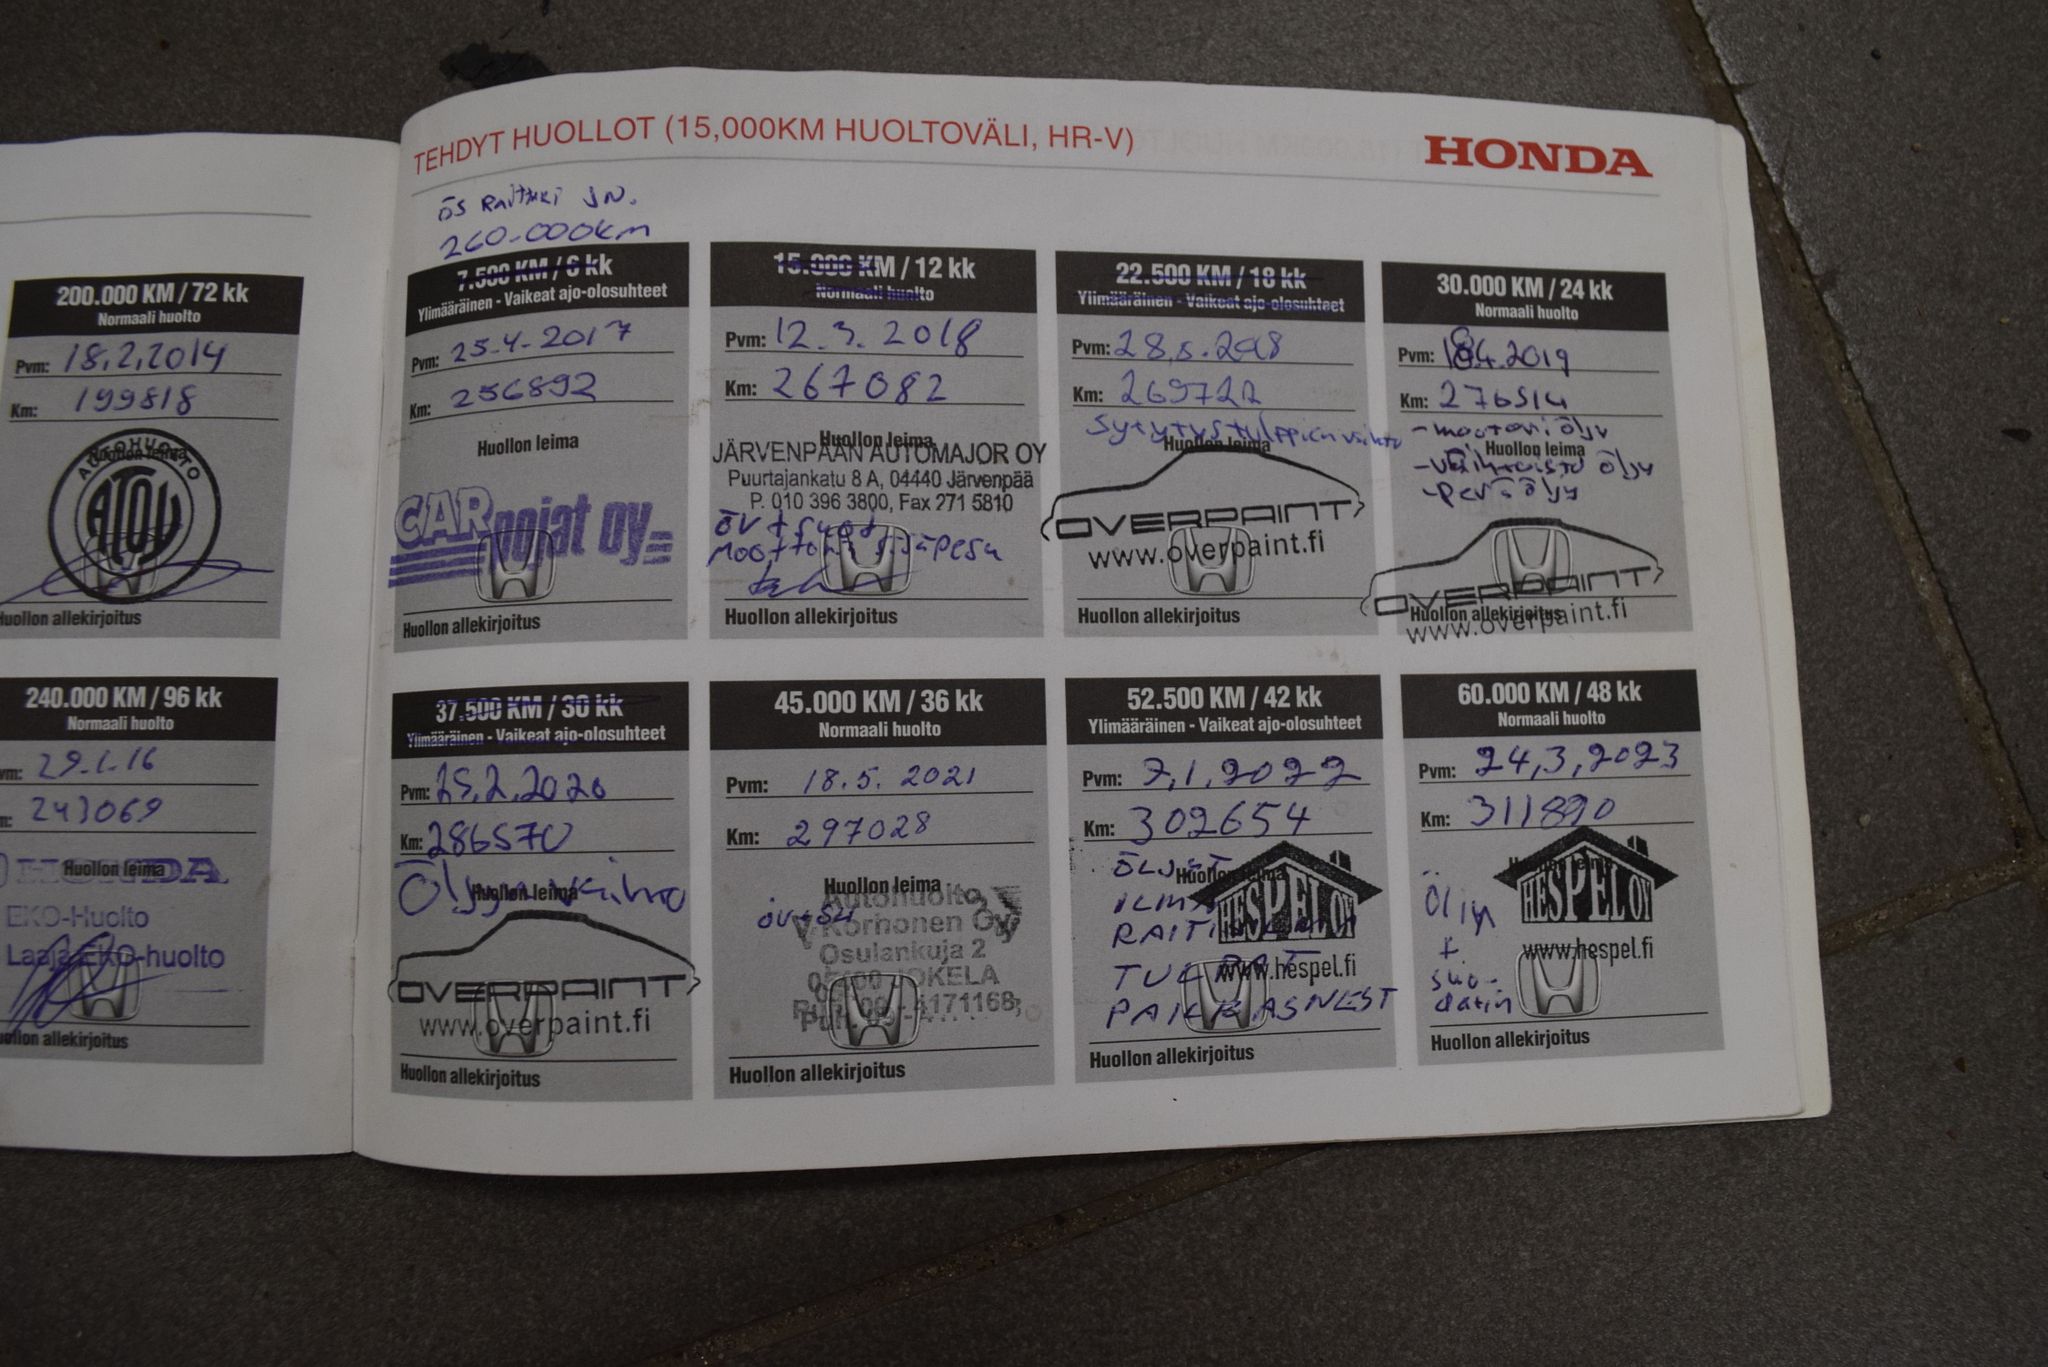 TEHDYT HUOLLOT (15,000KM HUOLTOVÄLI, HR-V)
HONDA
260.000km
200.000 KM / 72 kk
Normaali huolto
Pvm: 18.2.2014
Km: 199818
AUTOHUOLTO
ATOY
Huollon allekirjoitus
240.000 KM / 96 kk
Normaali huolto
29.1.16
243069
Huollon leima
HONDA
EKO-Huolto
Laaja EKO-huolto
Huollon allekirjoitus
7.500 KM / 6 kk
Ylimääräinen - Vaikeat ajo-olosuhteet
Pvm: 25.4.2017
Km: 256892
Huollon leima
CARpojat oy
Huollon allekirjoitus
15.000 KM / 12 kk
Normaali huolto
Pvm: 12.3.2018
Km: 267082
Huollon leima
JÄRVENPÄÄN AUTOMAJOR OY
Puurtajankatu 8 A, 04440 Järvenpää
P. 010 396 3800, Fax 271 5810
ÖV +
Huollon allekirjoitus
22.500 KM / 18 kk
Ylimääräinen - Vaikeat ajo-olosuhteet
Pvm:
Km:
Sytytystulppien vaihto
Huollon leima
OVERPAINT
www.overpaint.fi
Huollon allekirjoitus
30.000 KM / 24 kk
Normaali huolto
Pvm:
Km: 276514
- moottoriöljy
Huollon leima
- öljy
- peräöljy
OVERPAINT
Huollon allekirjoitus
www.overpaint.fi
37.500 KM / 30 kk
Ylimääräinen - Vaikeat ajo-olosuhteet
Pvm: 25.2.2020
Km: 286570
Huollon leima
OVERPAINT
www.overpaint.fi
Huollon allekirjoitus
45.000 KM / 36 kk
Normaali huolto
Pvm: 18.5.2021
Km: 297028
Huollon leima
Autohuolto
V. Korhonen Oy
Osulankuja 2
JOKELA
Huollon allekirjoitus
52.500 KM / 42 kk
Ylimääräinen - Vaikeat ajo-olosuhteet
Pvm: 7.1.2022
Km: 302654
Huollon leima
HESPEL OY
www.hespel.fi
Huollon allekirjoitus
60.000 KM / 48 kk
Normaali huolto
Pvm: 24.3.2023
Km: 311890
Huollon leima
HESPEL OY
Öljyn
+
suo-
datin
www.hespel.fi
Huollon allekirjoitus